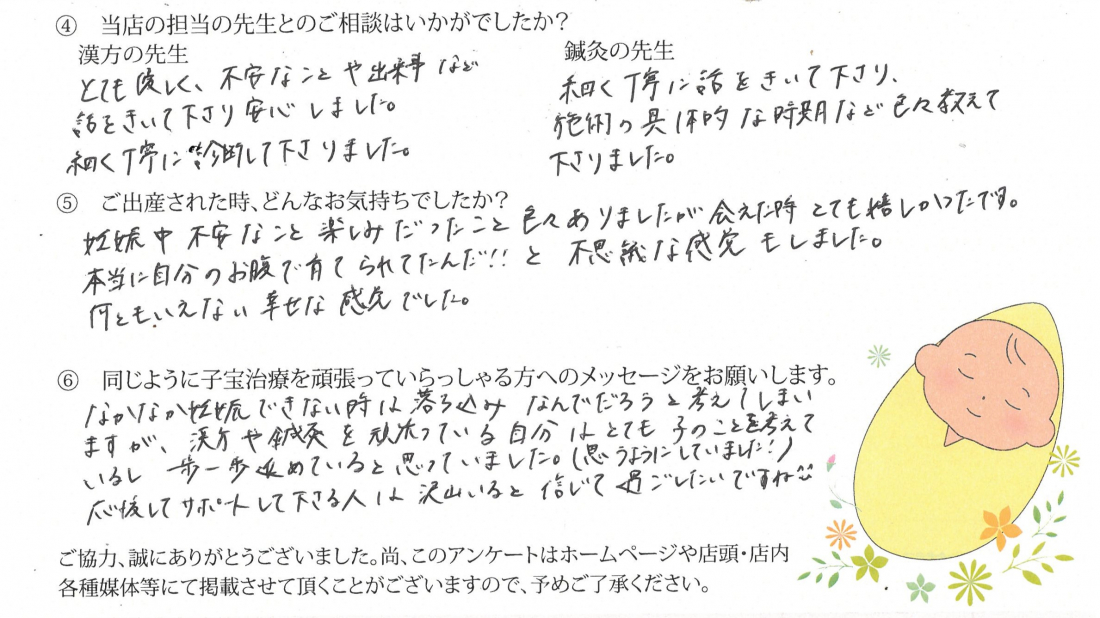 ④ 当店の担当の先生とのご相談はいかがでしたか?
漢方の先生
とても優しく、不安なことや出来事など
話をきいて下さり安心しました。
細く丁寧に診断して下さりました。
鍼灸の先生
細く丁寧に話をきいて下さり、
施術の具体的な時期など色々教えて
下さりました。
⑤ ご出産された時、どんなお気持ちでしたか?
妊娠中不安なこと楽しみだったこと色々ありましたが会えた時とても嬉しかったです。
本当に自分のお腹で育てられてたんだ!!と不思議な感覚もしました。
何ともいえない幸せな感覚でした。
⑥ 同じように子宝治療を頑張っていらっしゃる方へのメッセージをお願いします。
なかなか妊娠できない時は落ち込みなんでだろうと考えてしまい
ますが、漢方や鍼灸を頑張っている自分はとても子のことを考えて
いるし一歩一歩進めていると思っていました。(思うようにしていました!)
応援してサポートして下さる人は沢山いると信じて過ごしたいですね
ご協力、誠にありがとうございました。尚、このアンケートはホームページや店頭・店内
各種媒体等にて掲載させて頂くことがございますので、予めご了承ください。